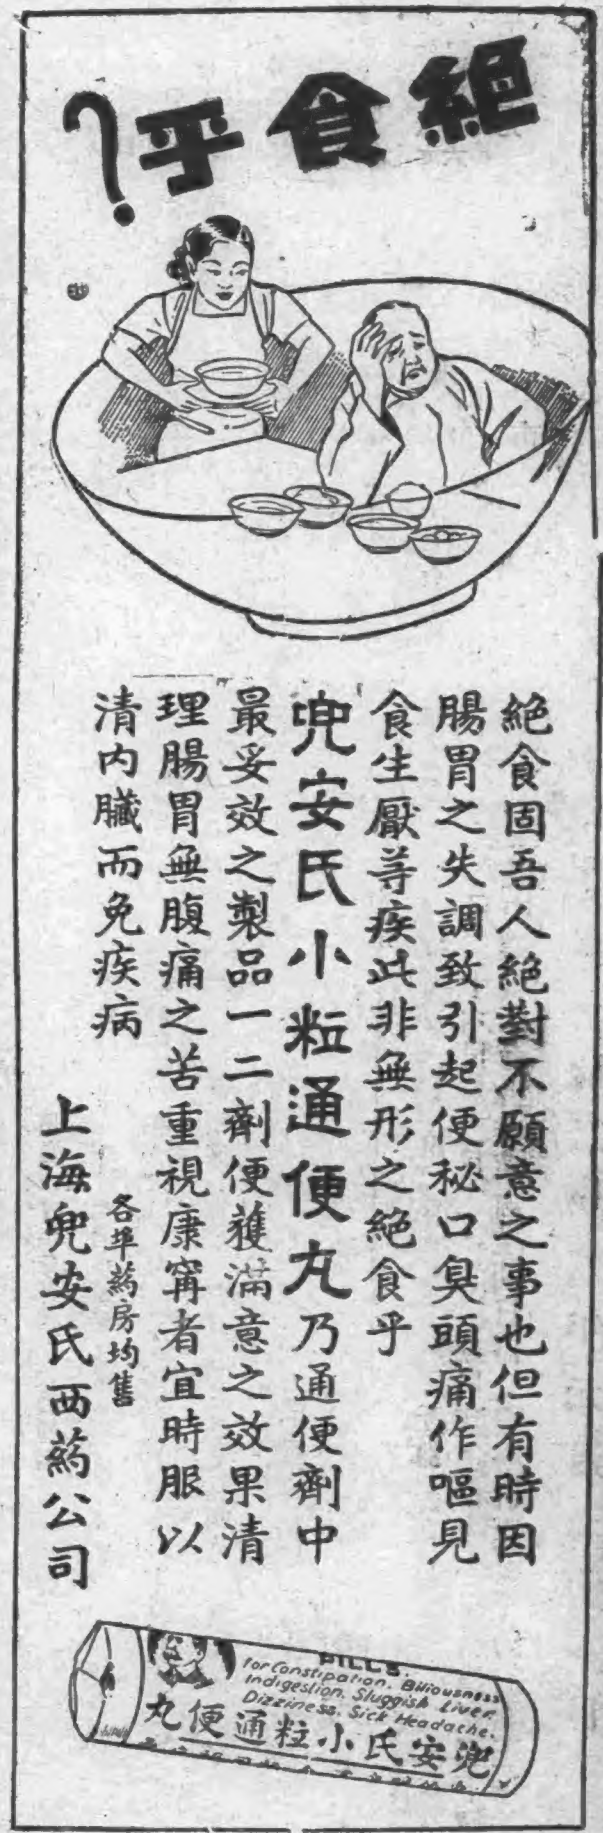 絕食乎?
絕食固吾人絕對不願意之事也但有時因
腸胃之失調致引起便秘口臭頭痛作嘔見
食生厭等疾此非無形之絕食乎
兜安氏小粒通便丸乃通便劑中
最妥效之製品一二劑便獲滿意之效果清
理腸胃無腹痛之苦重視康寗者宜時服以
清內臟而免疾病
各埠葯房均售
上海兜安氏西葯公司
PILLS.
for Constipation, Biliousness
Indigestion, Sluggish Liver,
Dizziness, Sick Headache.
兜安氏小粒通便丸